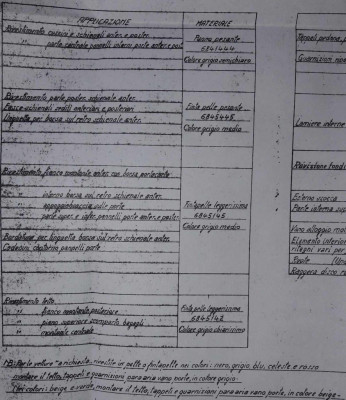 APPLICAZIONE
MATERIALE
Rivestimento cuscini e schienali anter. e poster.
" parte centrale pannelli interni porte anter. e post.
Panno pesante
6841444
Colore grigio
Rivestimento parte poster. schienale anter.
Fasce schienali sedili anteriori e posteriori
Linguetta per borsa sul retro schienale anter.
Finta pelle pesante
6845445
Colore grigio medio
Rivestimento fianco montante anter. con borsa portacarte
" interno borsa sul retro schienale anter.
" appoggiabraccia sulle porte
" parte super. e infer. pannelli porte anter. e poster.
Bordatura per linguetta borsa sul retro schienale anter.
pannelli porte
Fintapelle leggerissima
6845145
Colore grigio medio
Rivestimento tetto
" fianco montante posteriore
" piano superiore scomparto bagagli
" montante centrale
Finta pelle leggerissima
6845142
Colore grigio chiarissimo
Tappeti
Guarnizioni
Lamiere interne
Rivestitura
Esterno vasca
Parte interna
Vano alloggio
Elementi interior
vari per
Ruote
Raggera disco
Per le vetture a richiesta, rivestite in pelle o fintapelle nei colori: nero, grigio, blu, celeste e rosso
montare il tetto, tappeti e guarnizioni para aria vano porte, in colore grigio.
Nei colori: beige, e verde, montare il tetto, tappeti e guarnizioni para aria vano porte, in colore beige.